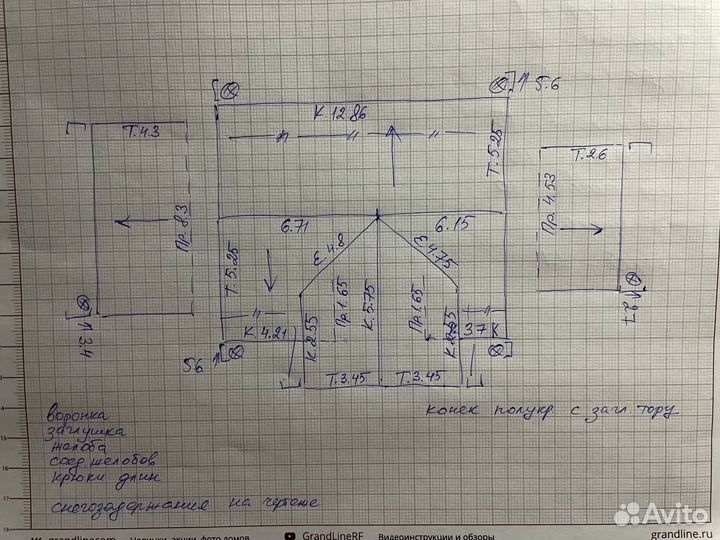 5.6
К. 12.86
Т. 4.3
Т. 5.25
Т. 2.6
Пр. 8.3
Пр. 4.53
6.71
6.15
Е 4.8
Е 4.75
Т. 5.25
Пр. 1.65
К. 5.75
Пр. 1.65
3.4
К. 4.21
К. 2.55
К. 2.55
3.7 К
2.7
5.6
Т. 3.45
Т. 3.45
воронка
заглушка
желоба
соед. желобов
крюки длин
снегозадержания на чертеже
конек полукр с загл. тору
15
16
17
18
grandlinecom
Новинки, акции, фото домов
GrandLineRF
Видеоинструкции и обзоры
grandline.ru
Avito